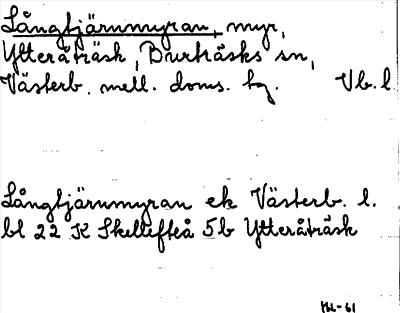 Långtjärnmyran, myr,
Ytteråträsk, Burträsks sn,
Västerb. mell. doms. tg. Vb. l.
Långtjärnmyran ek Västerb. l.
bl 22 K Skellefteå 5b Ytteråträsk
-61